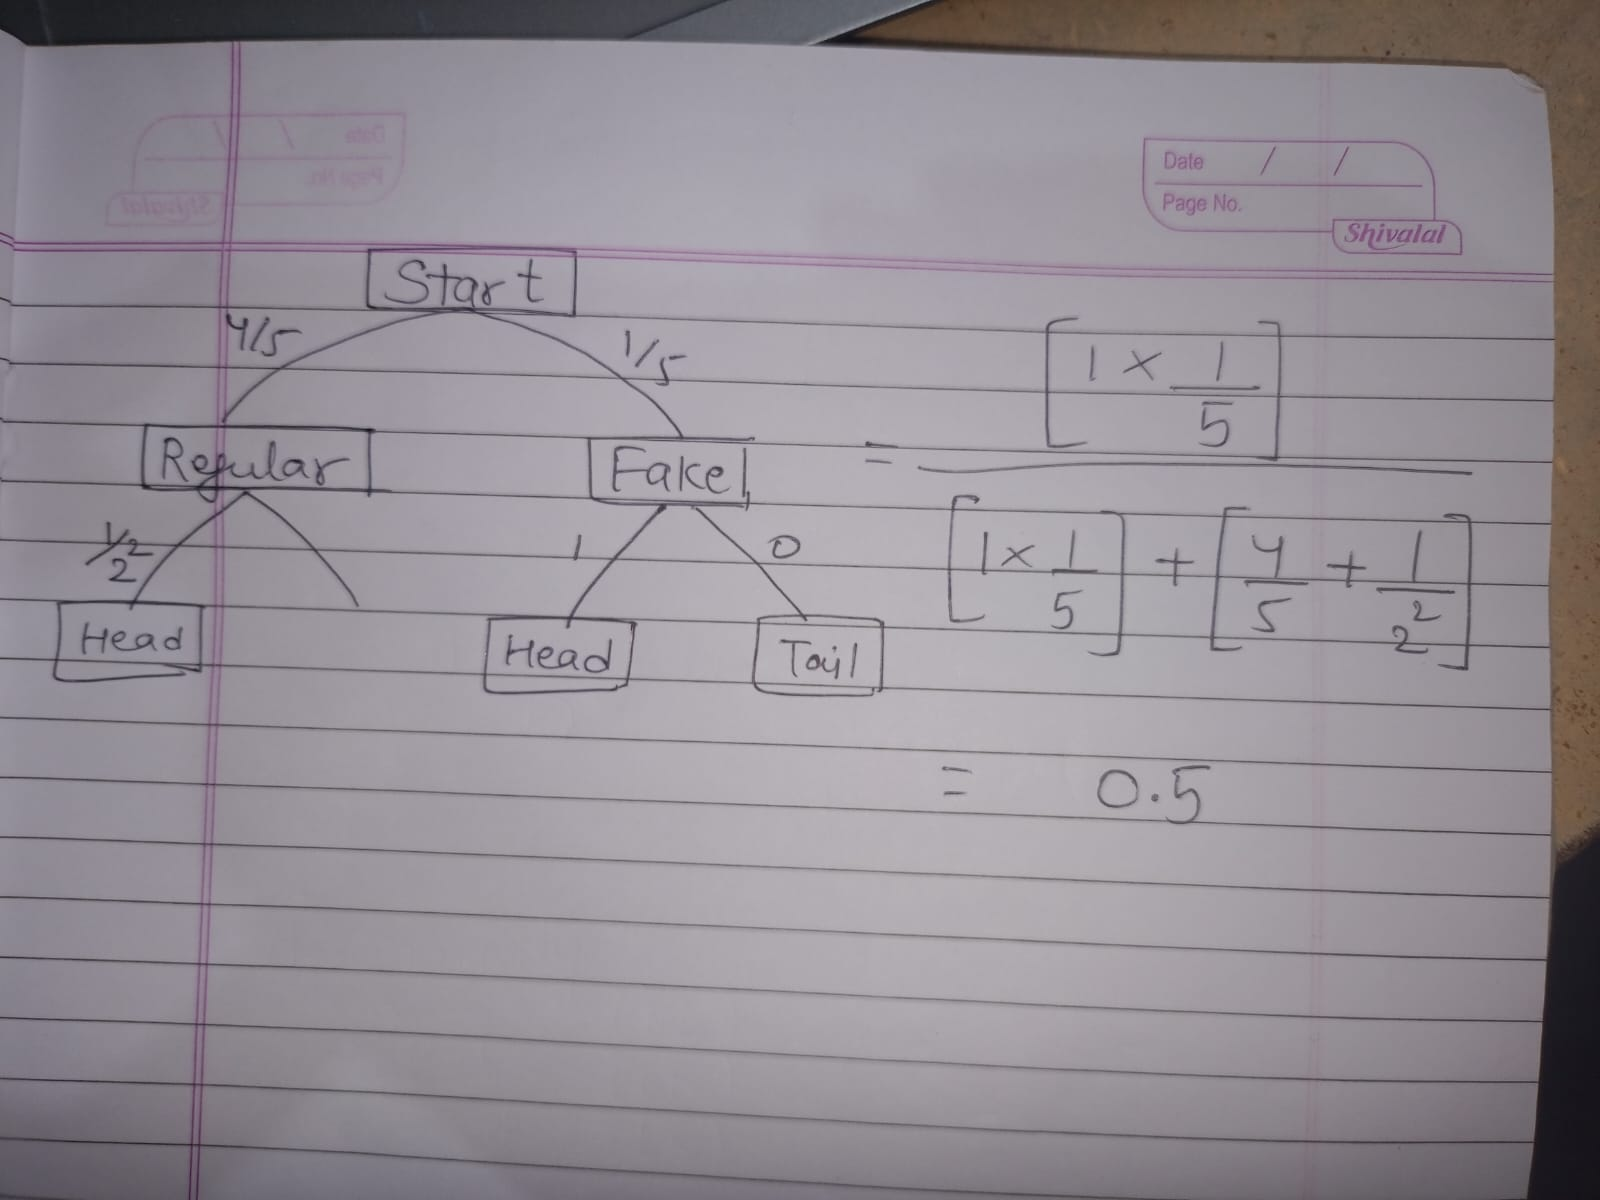 Date / /
Page No.
Shivalal
Start
4/5 1/5
Regular Fake
1/2² 1 0
Head Head Tail
= [1 × 1/5] / [1 × 1/5] + [4/5 + 1/2²]
= 0.5